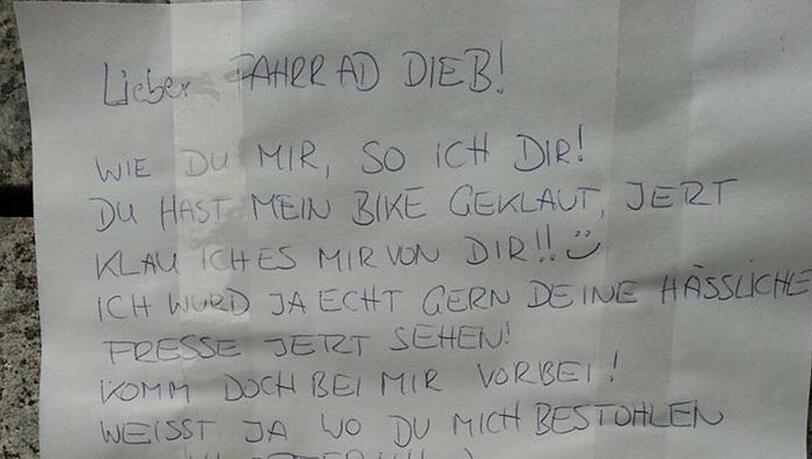 Lieber FAHRRAD DIEB!
WIE DU MIR, SO ICH DIR!
DU HAST MEIN BIKE GEKLAUT, JERT
KLAU ICH ES MIR VON DIR!! :)
ICH WURD JA ECHT GERN DEINE HÄSSLICHE
FRESSE JERT SEHEN!
KOMM DOCH BEI MIR VORBEI!
WEISST JA WO DU MICH BESTOHLEN